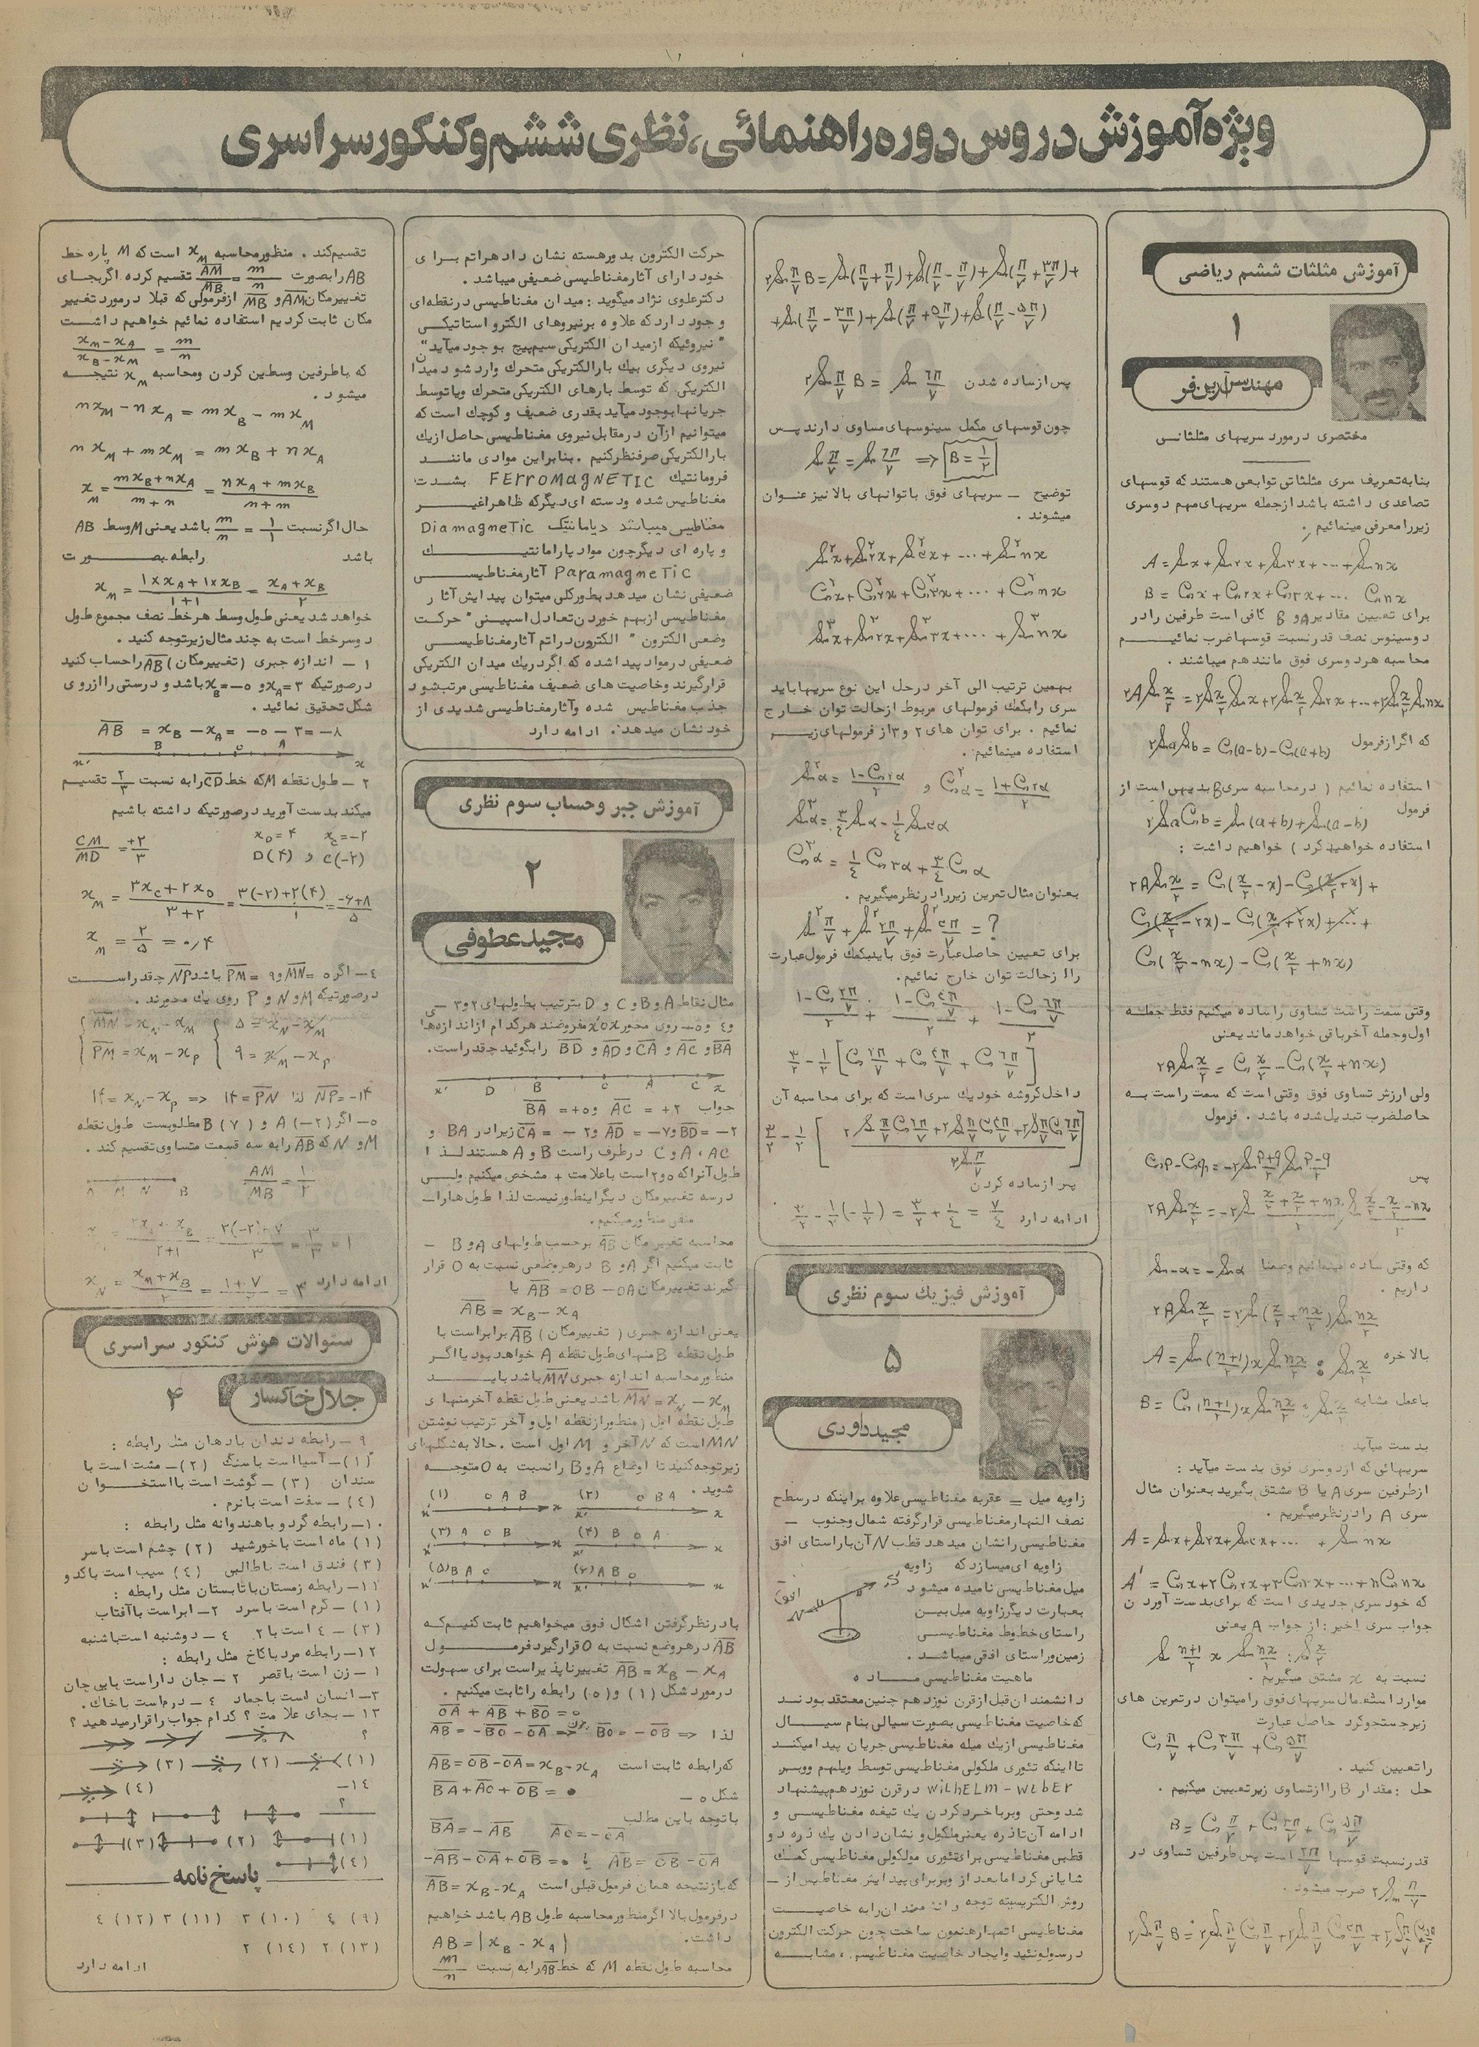 ویژه آموزش دروس دوره راهنمائی، نظری ششم و کنکور سراسری
آموزش مثلثات ششم ریاضی
۱
مهندس آرین فر
مختصری در مورد سریهای مثلثاتی
بنا به تعریف سری مثلثاتی توابعی هستند که قوسهای
تصاعدی داشته باشد از جمله سریهای مهم دو سری
زیر را معرفی مینمائیم
A = Sin x + Sin ۲x + Sin ۳x + ... + Sin nx
B = Cos x + Cos ۲x + Cos ۳x + ... Cos nx
برای تعیین مقادیر A و B کافی است طرفین را در
دو سینوس نصف قدر نسبت قوسها ضرب نمائیم
محاسبه هر دو سری فوق مانند هم میباشند .
۲A Sin x/۲ = ۲Sin x/۲ Sin x + ۲Sin x/۲ Sin ۲x + ... + ۲Sin x/۲ Sin nx
که اگر از فرمول ۲Sin a Sin b = Cos(a-b) - Cos(a+b)
استفاده نمائیم ( در محاسبه سری B بدیهی است از
فرمول ۲Sin a Cos b = Sin (a+b) + Sin (a-b)
استفاده خواهید کرد ) خواهیم داشت :
۲A Sin x/۲ = Cos(x/۲ - x) - Cos(x/۲ + x) +
Cos(x/۲ - ۲x) - Cos(x/۲ + ۲x) + ... +
Cos(x/۲ - nx) - Cos(x/۲ + nx)
وقتی سمت راست تساوی را ساده میکنیم فقط جمله
اول و جمله آخر باقی خواهد ماند یعنی
۲A Sin x/۲ = Cos x/۲ - Cos(x/۲ + nx)
ولی ارزش تساوی فوق وقتی است که سمت راست به
حاصلضرب تبدیل شده باشد . فرمول
Cos p - Cos q = -۲Sin p+q/۲ Sin p-q/۲
پس
که وقتی ساده مینمائیم وضمنا Sin -α = -Sin α
داریم .
بالاخره A = Sin (n+1)/۲ x Sin nx/۲ : Sin x/۲
باعمل مشابه B = Cos (n+1)/۲ x Sin nx/۲ : Sin x/۲
بدست میآید
سریهائی که از دو سری فوق بدست میآید :
از طرفین سری A یا B مشتق بگیرید بعنوان مثال
سری A را در نظر میگیریم .
A = Sin x + Sin ۲x + Sin ۳x + ... + Sin nx
A' = Cos x + ۲Cos ۲x + ۳Cos ۳x + ... + nCos nx
که خود سری جدیدی است که برای بدست آوردن
جواب سری اخیر : از جواب A یعنی
Sin n+1/۲ x Sin nx/۲ : Sin x/۲
نسبت به x مشتق میگیریم .
موارد استعمال سریهای فوق را میتوان در تمرین های
زیر جستجو کرد حاصل عبارت
Cos π/۷ + Cos ۳π/۷ + Cos ۵π/۷
را تعیین کنید .
حل : مقدار B را از تساوی زیر تعیین میکنیم .
B = Cos π/۷ + Cos ۳π/۷ + Cos ۵π/۷
قدر نسبت قوسها ۲π/۷ است پس طرفین تساوی در
۲ Sin π/۷ ضرب میشود .
۲Sin π/۷ B = ۲Sin π/۷ Cos π/۷ + ۲Sin π/۷ Cos ۳π/۷ + ۲Sin π/۷ Cos ۵π/۷
۲Sin π/۷ B = Sin(π/۷ + π/۷) + Sin(π/۷ - π/۷) + Sin(π/۷ + ۳π/۷) +
+ Sin(π/۷ - ۳π/۷) + Sin(π/۷ + ۵π/۷) + Sin(π/۷ - ۵π/۷)
پس از ساده شدن ۲Sin π/۷ B = Sin ۶π/۷
چون قوسهای مکمل سینوسهای مساوی دارند پس
Sin π/۷ = Sin ۶π/۷ ⇐ B = ۱/۲
توضیح – سریهای فوق با توانهای بالا نیز عنوان
میشوند .
Sin²x + Sin²۲x + Sin²۳x + ... + Sin²nx
Cos²x + Cos²۲x + Cos²۳x + ... + Cos²nx
Sin³x + Sin³۲x + Sin³۳x + ... + Sin³nx
بهمین ترتیب الی آخر در حل این نوع سریها باید
سری را بکمک فرمولهای مربوط از حالت توان خارج
نمائیم . برای توان های ۲ و ۳ از فرمولهای زیر
استفاده مینمائیم .
Sin²α = ۱-Cos ۲α/۲ و Cos²α = ۱+Cos ۲α/۲
Sin³α = ۳/۴ Sin α - ۱/۴ Sin ۳α
Cos³α = ۱/۴ Cos ۳α + ۳/۴ Cos α
بعنوان مثال تمرین زیر را در نظر میگیریم .
Sin²π/۷ + Sin²۲π/۷ + Sin²۳π/۷ = ?
برای تعیین حاصل عبارت فوق باید بکمک فرمول عبارت
را از حالت توان خارج نمائیم .
۱-Cos ۲π/۷/۲ + ۱-Cos ۴π/۷/۲ + ۱-Cos ۶π/۷/۲
۳/۲ - ۱/۲ [Cos ۲π/۷ + Cos ۴π/۷ + Cos ۶π/۷]
داخل کروشه خود یك سری است که برای محاسبه آن
پس از ساده کردن
۳/۲ - ۱/۲(-۱/۲) = ۳/۲ + ۱/۴ = ۷/۴ ادامه دارد
آموزش فیزیك سوم نظری
۵
مجید داودی
زاویه میل = عقربه مغناطیسی علاوه بر اینکه در سطح
نصف النهار مغناطیسی قرار گرفته شمال و جنوب –
مغناطیسی را نشان میدهد قطب N آن با راستای افق
زاویه ای میسازد که زاویه
میل مغناطیسی نامیده میشود
بعبارت دیگر زاویه میل بین
راستای خطوط مغناطیسی
زمین و راستای افقی میباشد .
ماهیت مغناطیسی ماده
دانشمندان قبل از قرن نوزدهم چنین معتقد بودند
که خاصیت مغناطیسی بصورت سیالی بنام سیال
مغناطیسی از یك میله مغناطیسی جریان پیدا میکند
تا اینکه تئوری ملکولی مغناطیسی توسط ویلهم ووبر
wilhelm – weber در قرن نوزدهم پیشنهاد
شد وحتی وبر با خرد کردن یك تیغه مغناطیسی و
ادامه آن تا ذره یعنی ملکول و نشان دادن یك ذره دو
قطبی مغناطیسی برای تئوری مولکولی مغناطیسی کمك
شایانی کرد اما بعد از وبر برای پیدایش مغناطیس از –
در سولونئید وایجاد خاصیت مغناطیسی ، مشابه
حرکت الکترون بدور هسته نشان داد هر اتم برای
خود دارای آثار مغناطیسی ضعیفی میباشد .
دکتر علوی نژاد میگوید : میدان مغناطیسی در نقطه ای
وجود دارد که علاوه بر نیروهای الکترو استاتیکی
" نیروئیکه از میدان الکتریکی سیم پیچ بوجود میآید "
نیروی دیگری بیك بار الکتریکی متحرك وارد شود میدان
الکتریکی که توسط بارهای الکتریکی متحرك ویا توسط
جریانها بوجود میآید بقدری ضعیف و کوچك است که
میتوانیم از آن در مقابل نیروی مغناطیسی حاصل از یك
بار الکتریکی صرفنظر کنیم . بنابراین موادی مانند
فرومانتیك FERROMAGNETIC بشدت
مغناطیس شده و دسته ای دیگر که ظاهرا غیر
مغناطیسی میباشند دیامانتیك Diamagnetic
و پاره ای دیگر چون مواد پارامانتیك
Paramagnetic آثار مغناطیسی
ضعیفی نشان میدهد بطور کلی میتوان پیدایش آثار
مغناطیسی از بهم خوردن تعادل اسپینی " حرکت
وضعی الکترون " الکترون در اتم آثار مغناطیسی
ضعیفی در مواد پیدا شده که اگر در یك میدان الکتریکی
قرار گیرند وخاصیت های ضعیف مغناطیسی مرتب شود
جذب مغناطیس شده وآثار مغناطیسی شدیدی از
خود نشان میدهد . ادامه دارد
آموزش جبر و حساب سوم نظری
۲
مجید عطوفی
مثال نقاط A و B و C و D بترتیب بطولهای ۲ و ۳ –
و ۴ و ۵– روی محور x'ox مفروضند هر کدام از اندازه ها
BA و AC و CA و AD و BD را بگوئید چقدر است .
جواب AC = +۲ و BA = +۵
AC ، A و C در طرف راست B و A هستند لذا
طول آنرا که ۵ و ۲ است با علامت + مشخص میکنیم ولی
در سه تغییر مکان دیگر اینطور نیست لذا طول ها را
منفی منظور میکنیم .
محاسبه تغییر مکان AB برحسب طولهای A و B –
ثابت میکنیم اگر A و B در هر وضعی نسبت به O قرار
گیرند تغییر مکان AB = OB - OA یا
AB = xB - xA
یعنی اندازه جبری ( تغییر مکان ) AB برابر است با
طول نقطه B منهای طول نقطه A خواهد بود یا اگر
منظور محاسبه اندازه جبری MN باشد باید
MN = xN - xM باشد یعنی طول نقطه آخر منهای
طول نقطه اول ( منظور از نقطه اول و آخر ترتیب نوشتن
MN است که N آخر و M اول است . حالا به شکلهای
زیر توجه کنید تا اوضاع A و B را نسبت به O متوجه
شوید .
(۱) O A B (۲) O B A
(۳) A O B (۴) B O A
(۵) B A O (۶) A B O
با در نظر گرفتن اشکال فوق میخواهیم ثابت کنیم که
AB در هر وضع نسبت به O قرار گیرد فرمول
AB = xB - xA تغییر ناپذیر است برای سهولت
در مورد شکل (۱) و (۵) رابطه را ثابت میکنیم .
OA + AB + BO = 0
لذا AB = -BO - OA چون BO = -OB
که رابطه ثابت است AB = OB - OA = xB - xA
شکل ۵ – BA + AO + OB = 0
با توجه باین مطلب AO = -OA BA = -AB
-AB - OA + OB = 0 یا AB = OB - OA
که باز نتیجه همان فرمول قبلی است AB = xB - xA
در فرمول بالا اگر منظور محاسبه طول AB باشد خواهیم
داشت . AB = |xB - xA|
محاسبه طول نقطه M که خط AB را به نسبت m/n
تقسیم کند . منظور محاسبه xM است که M پاره خط
AB را بصورت AM/MB = m/n تقسیم کرده اگر بجای
تغییر مکان AM و MB از فرمولی که قبلا در مورد تغییر
مکان ثابت کردیم استفاده نمائیم خواهیم داشت
xM - xA/xB - xM = m/n
که با طرفین وسطین کردن ومحاسبه xM نتیجه
میشود .
nxM - nxA = mxB - mxM
nxM + mxM = mxB + nxA
xM = mxB + nxA/m+n = nxA + mxB/n+m
حال اگر نسبت m/n = ۱/۱ باشد یعنی M وسط AB
باشد رابطه بصورت
xM = ۱×xA + ۱×xB/۱+۱ = xA + xB/۲
خواهد شد یعنی طول وسط هر خط نصف مجموع طول
دو سر خط است به چند مثال زیر توجه کنید .
۱ – اندازه جبری ( تغییر مکان ) AB را حساب کنید
در صورتیکه xA = ۳ و xB = -۵ باشد و درستی را از روی
شکل تحقیق نمائید .
AB = xB - xA = -۵-۳ = -۸
۲ – طول نقطه M که خط CD را به نسبت ۲/۳ تقسیم
میکند بدست آورید در صورتیکه داشته باشیم
xC = -۲ xD = ۴ CM/MD = +۲/۳
C(-۲) و D(۴)
xM = ۳xC + ۲xD/۳+۲ = ۳(-۲)+۲(۴)/۱ = -۶+۸/۵
xM = ۲/۵ = ۰/۴
۴ – اگر MN = ۵ و PM = ۹ باشد NP چقدر است
در صورتیکه M و N و P روی یك محورند .
MN = xN - xM ۵ = xN - xM
PM = xM - xP ۹ = xM - xP
۱۴ = xN - xP ⇒ ۱۴ = PN لذا NP = -۱۴
۵– اگر A (-۲) و B (۷) مطلوبست طول نقطه
M و N که AB را به سه قسمت متساوی تقسیم کند .
AM/MB = ۱/۲
xN = xM + xB/۲ = ۱+۷/۲ = ۴ ادامه دارد
سئوالات هوش کنکور سراسری
جلال خاکسار
۴
۹ – رابطه دندان با دهان مثل رابطه :
(۱) – آسیا است با سنگ (۲) – مشت است با
سندان (۳) – گوشت است با استخوان
(۴) – سفت است با نرم .
۱۰– رابطه گردو با هندوانه مثل رابطه :
(۱) ماه است با خورشید (۲) چشم است با سر
(۳) فندق است با طالبی (۴) سیب است با کدو
۱۱– رابطه زمستان با تابستان مثل رابطه :
(۱) – گرم است با سرد ۲– ابر است با آفتاب
(۳) – ۴ است با ۲ ۴ – دوشنبه است با شنبه
۱۲– رابطه مرد با کاخ مثل رابطه :
۱– زن است با قصر ۲– جان دار است با بی جان
۳– انسان است با جماد ۴ – درم است با خاك .
۱۳ – بجای علامت ؟ کدام جواب را قرار میدهید ؟
؟
(۱) (۲) (۳)
(۴)
۱۴–
؟
(۱) (۲) (۳)
(۴)
پاسخ نامه
(۹) ۴ (۱۰) ۳ (۱۱) ۳ (۱۲) ۴
(۱۳) ۲ (۱۴) ۲
ادامه دارد